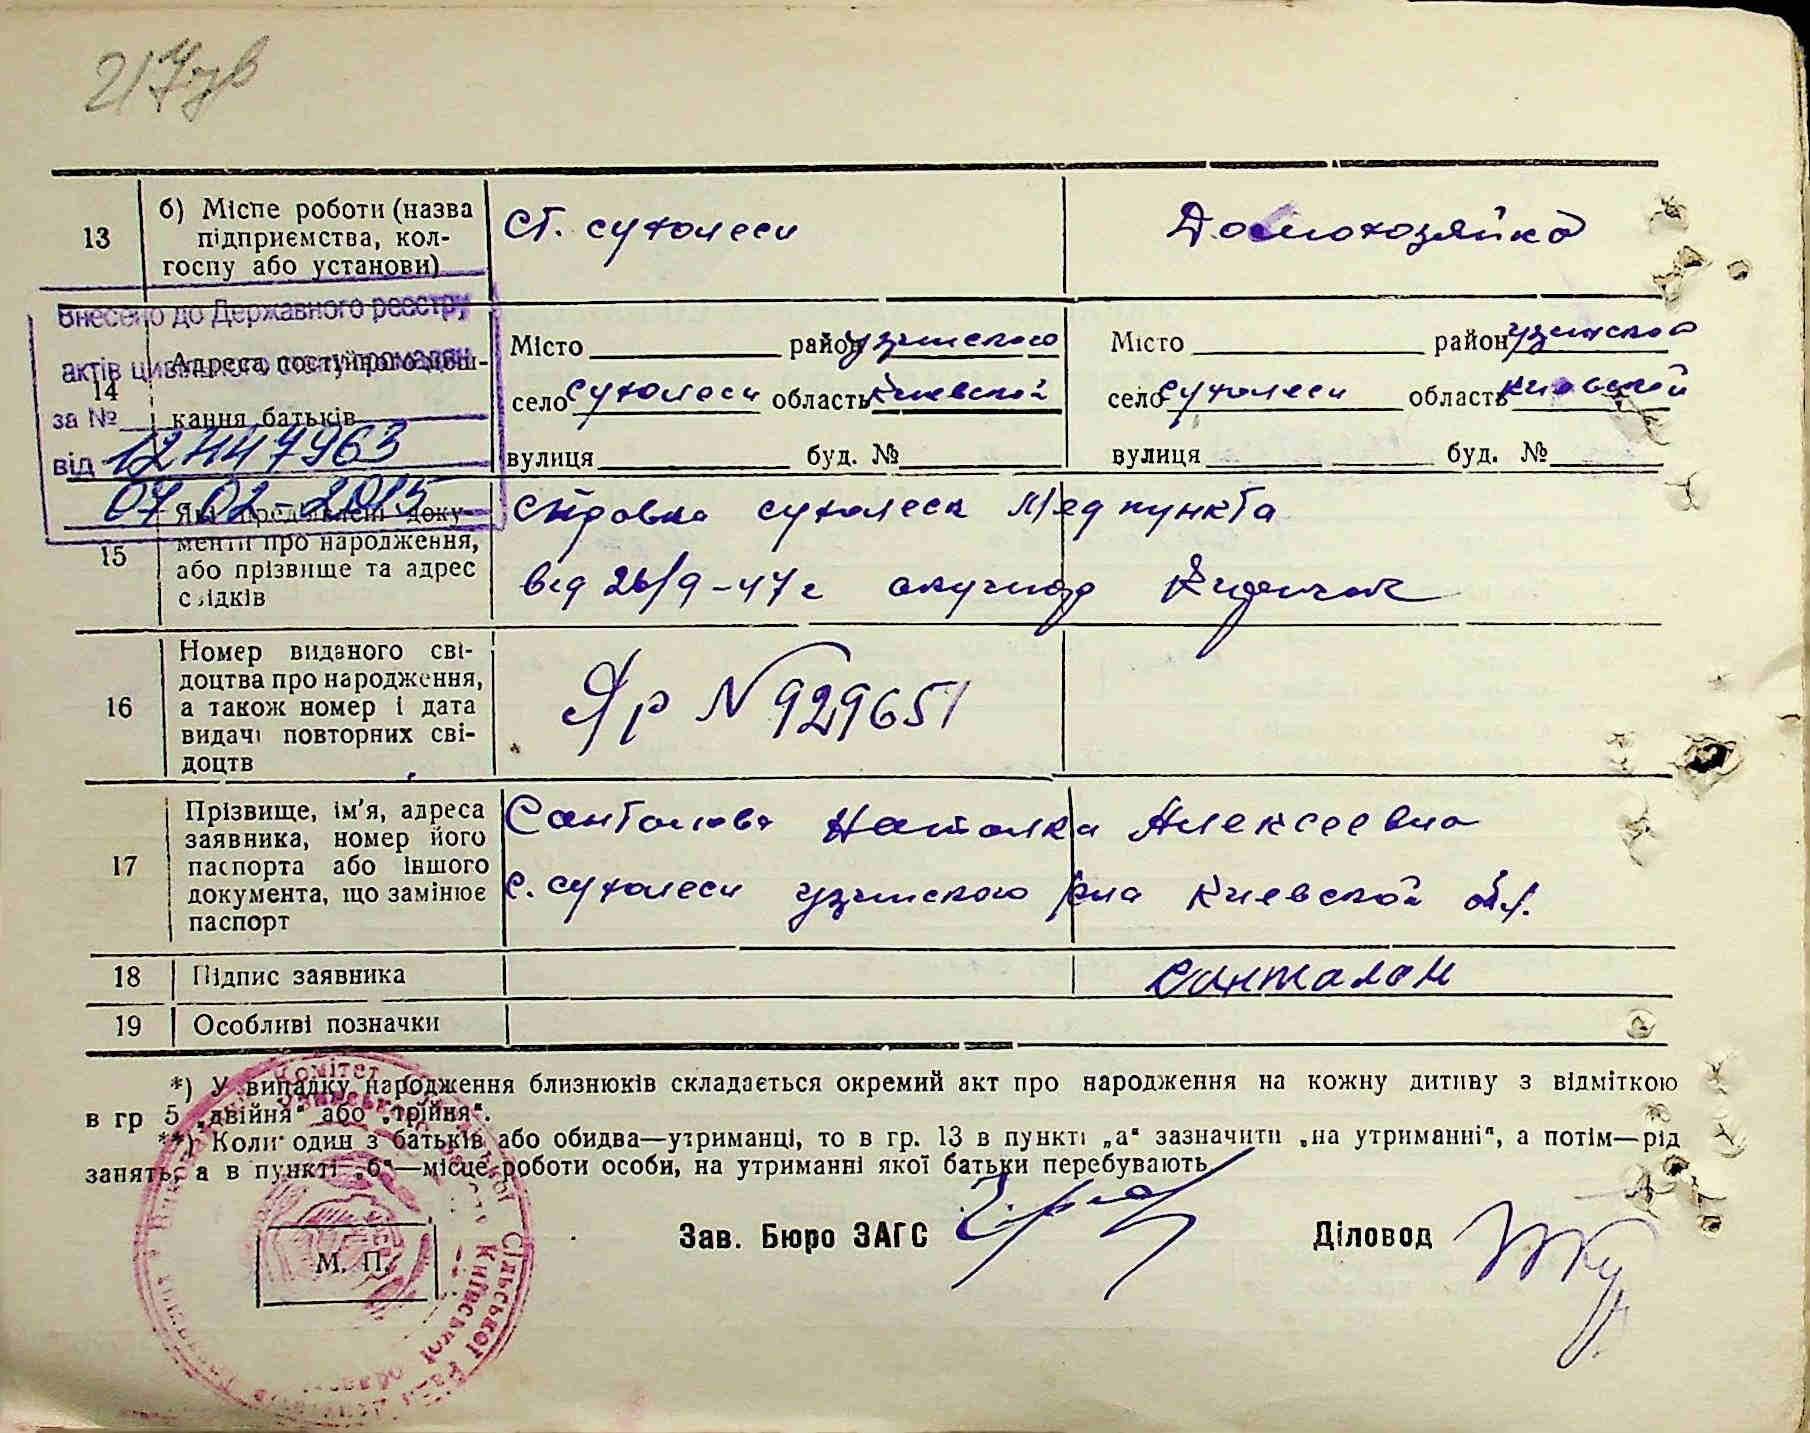 217 зв
13
б) Місце роботи (назва
підприємства, кол-
госпу або установи)
Ст. сухолеси
Домохозяйка
Внесено до Державного реєстру
актів цивільного стану громадян
за №
12447963
від
07 02-2015
14
Адреса постійного меш-
кання батьків
Місто район узинского
село Сухолеси область Киевской
вулиця буд. №
Місто район узинского
село Сухолеси область Киевской
вулиця буд. №
15
Які пред'явлені доку-
менти про народження,
або прізвище та адрес
свідків
Справка сухолеси Медпункта
від 26/9-47 г
16
Номер виданого сві-
доцтва про народження,
а також номер і дата
видачі повторних сві-
доцтв
Яр N 929651
17
Прізвище, ім'я, адреса
заявника, номер його
паспорта або іншого
документа, що замінює
паспорт
Санталова Наталка Алексеевна
с. сухолеси узинского р-на Киевской обл.
18
Підпис заявника
Санталов
19
Особливі позначки
*) У випадку народження близнюків складається окремий акт про народження на кожну дитину з відміткою
в гр 5 „двійня“ або „трійня“.
**) Коли один з батьків або обидва—утриманці, то в гр. 13 в пункті „а“ зазначити „на утриманні“, а потім—рід
занять, а в пункті „б“—місце роботи особи, на утриманні якої батьки перебувають.
Зав. Бюро ЗАГС
Діловод
М. П.
комітет
Сільської Ради
Київської